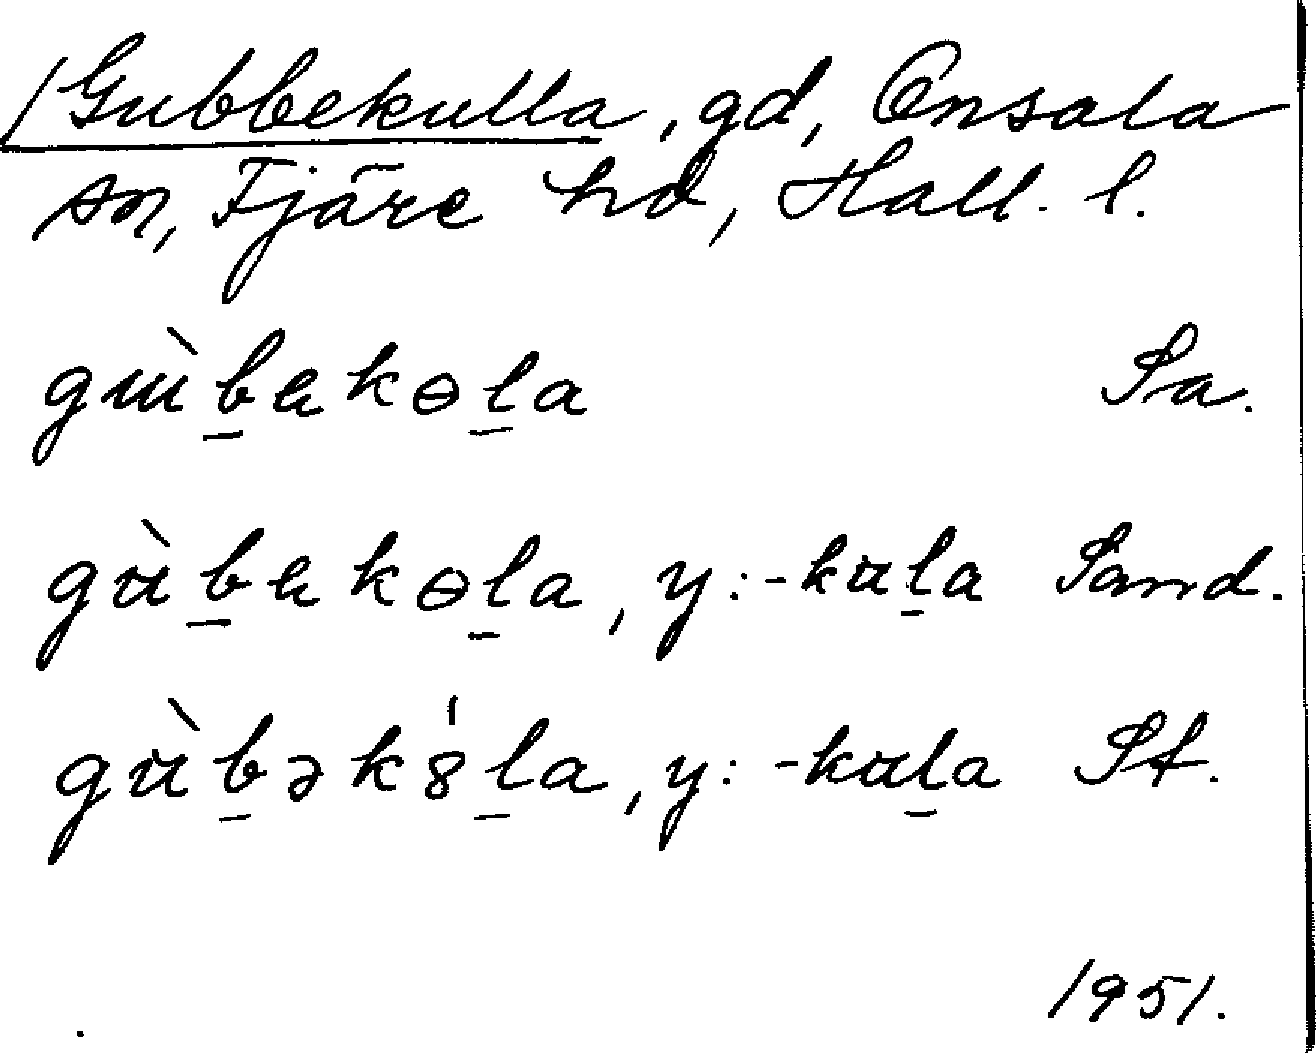 /Gubbekulla, gd, Onsala
sn, Fjäre hd, Hall. l.
gɯ̀b̲ekɵl̲a Sa.
gᵾ̀b̲ekɵl̲a, y: -kᵾl̲a Sand.
gᵾ̀b̲ək8̍l̲a, y: -kᵾl̲a St.
1951.